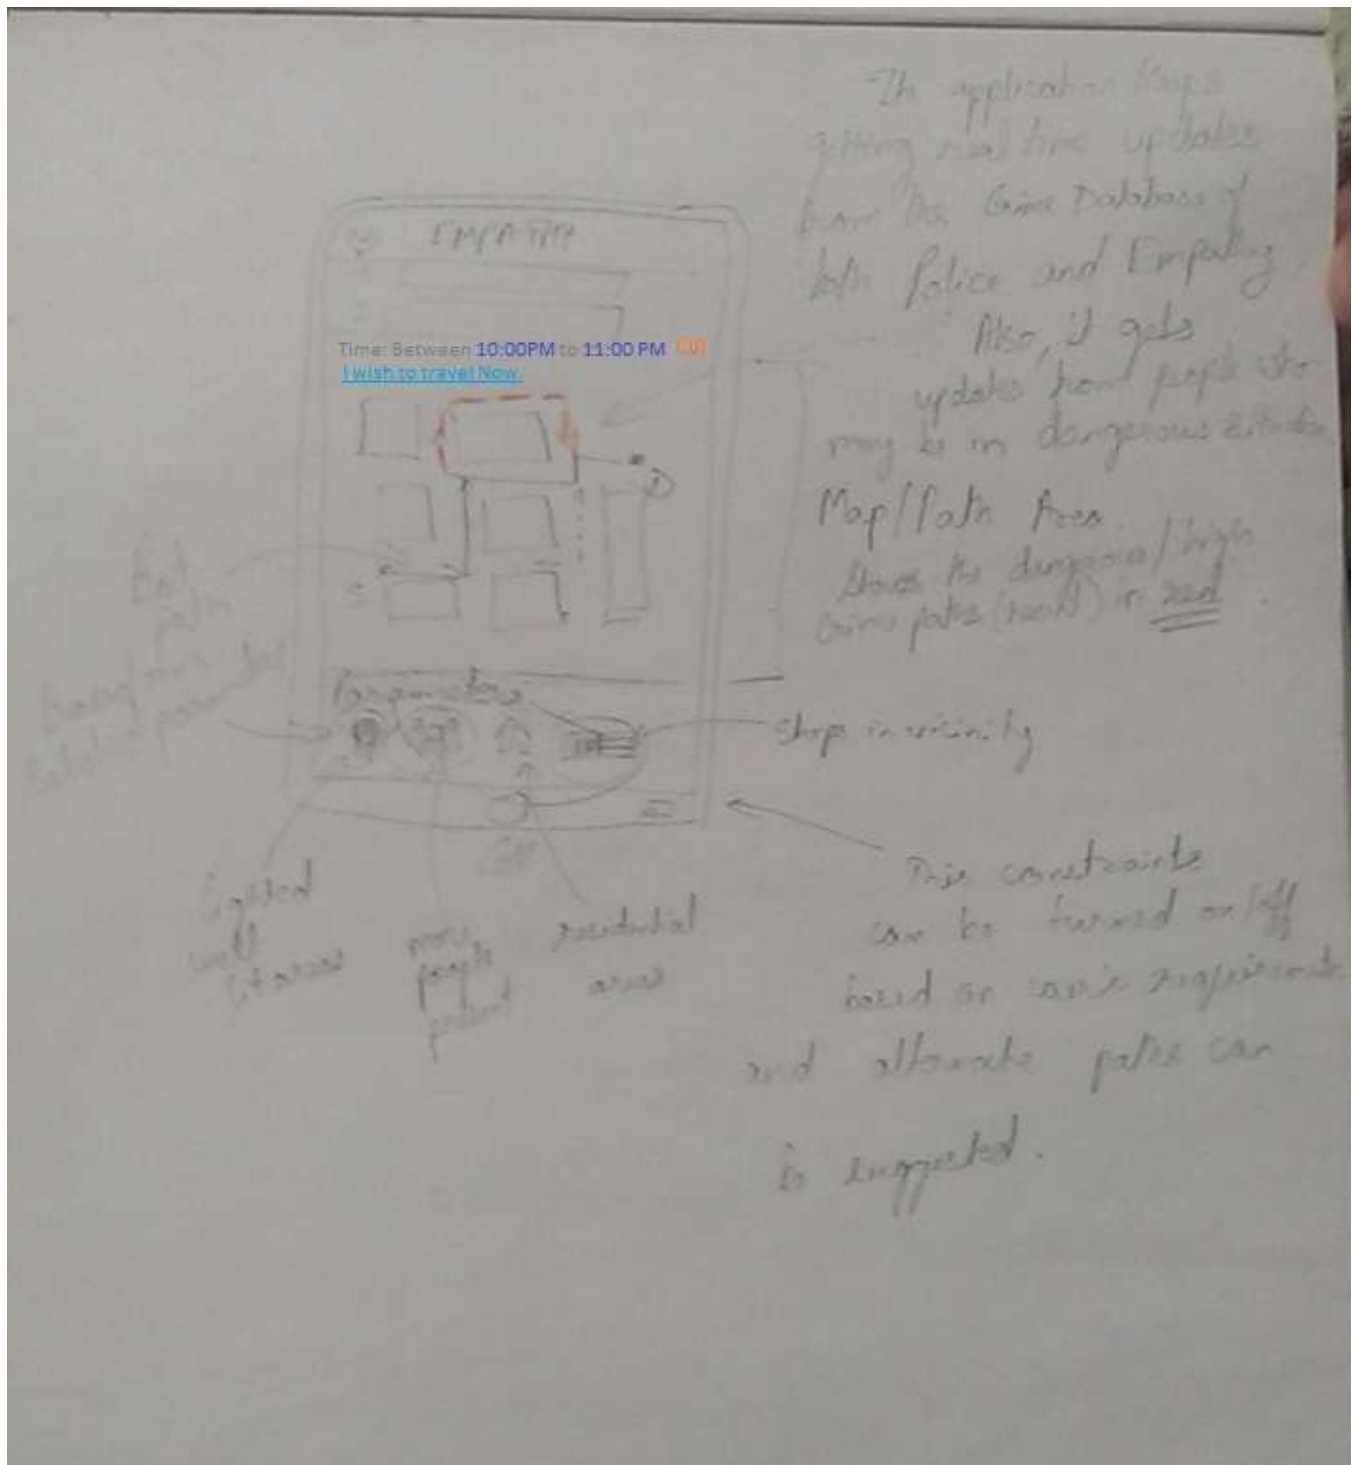 The application keeps
getting real time updates
from the Crime Database of
both Police and Empathy
Also, it gets
updates from people who
may be in dangerous situation
Map/Path Area.
Shows the dangerous/high
crime paths (           ) in red.
EMPATHY
Time: Between 10:00PM to 11:00 PM
I wish to travel Now.
D
S
Best
path
Based on
selected parameter
Parameters
Shops in vicinity
Lighted
well
lit areas
more
people
present
residential
areas
This constraints
can be turned on/off
based on user's requirements
and alternate paths can
be suggested.